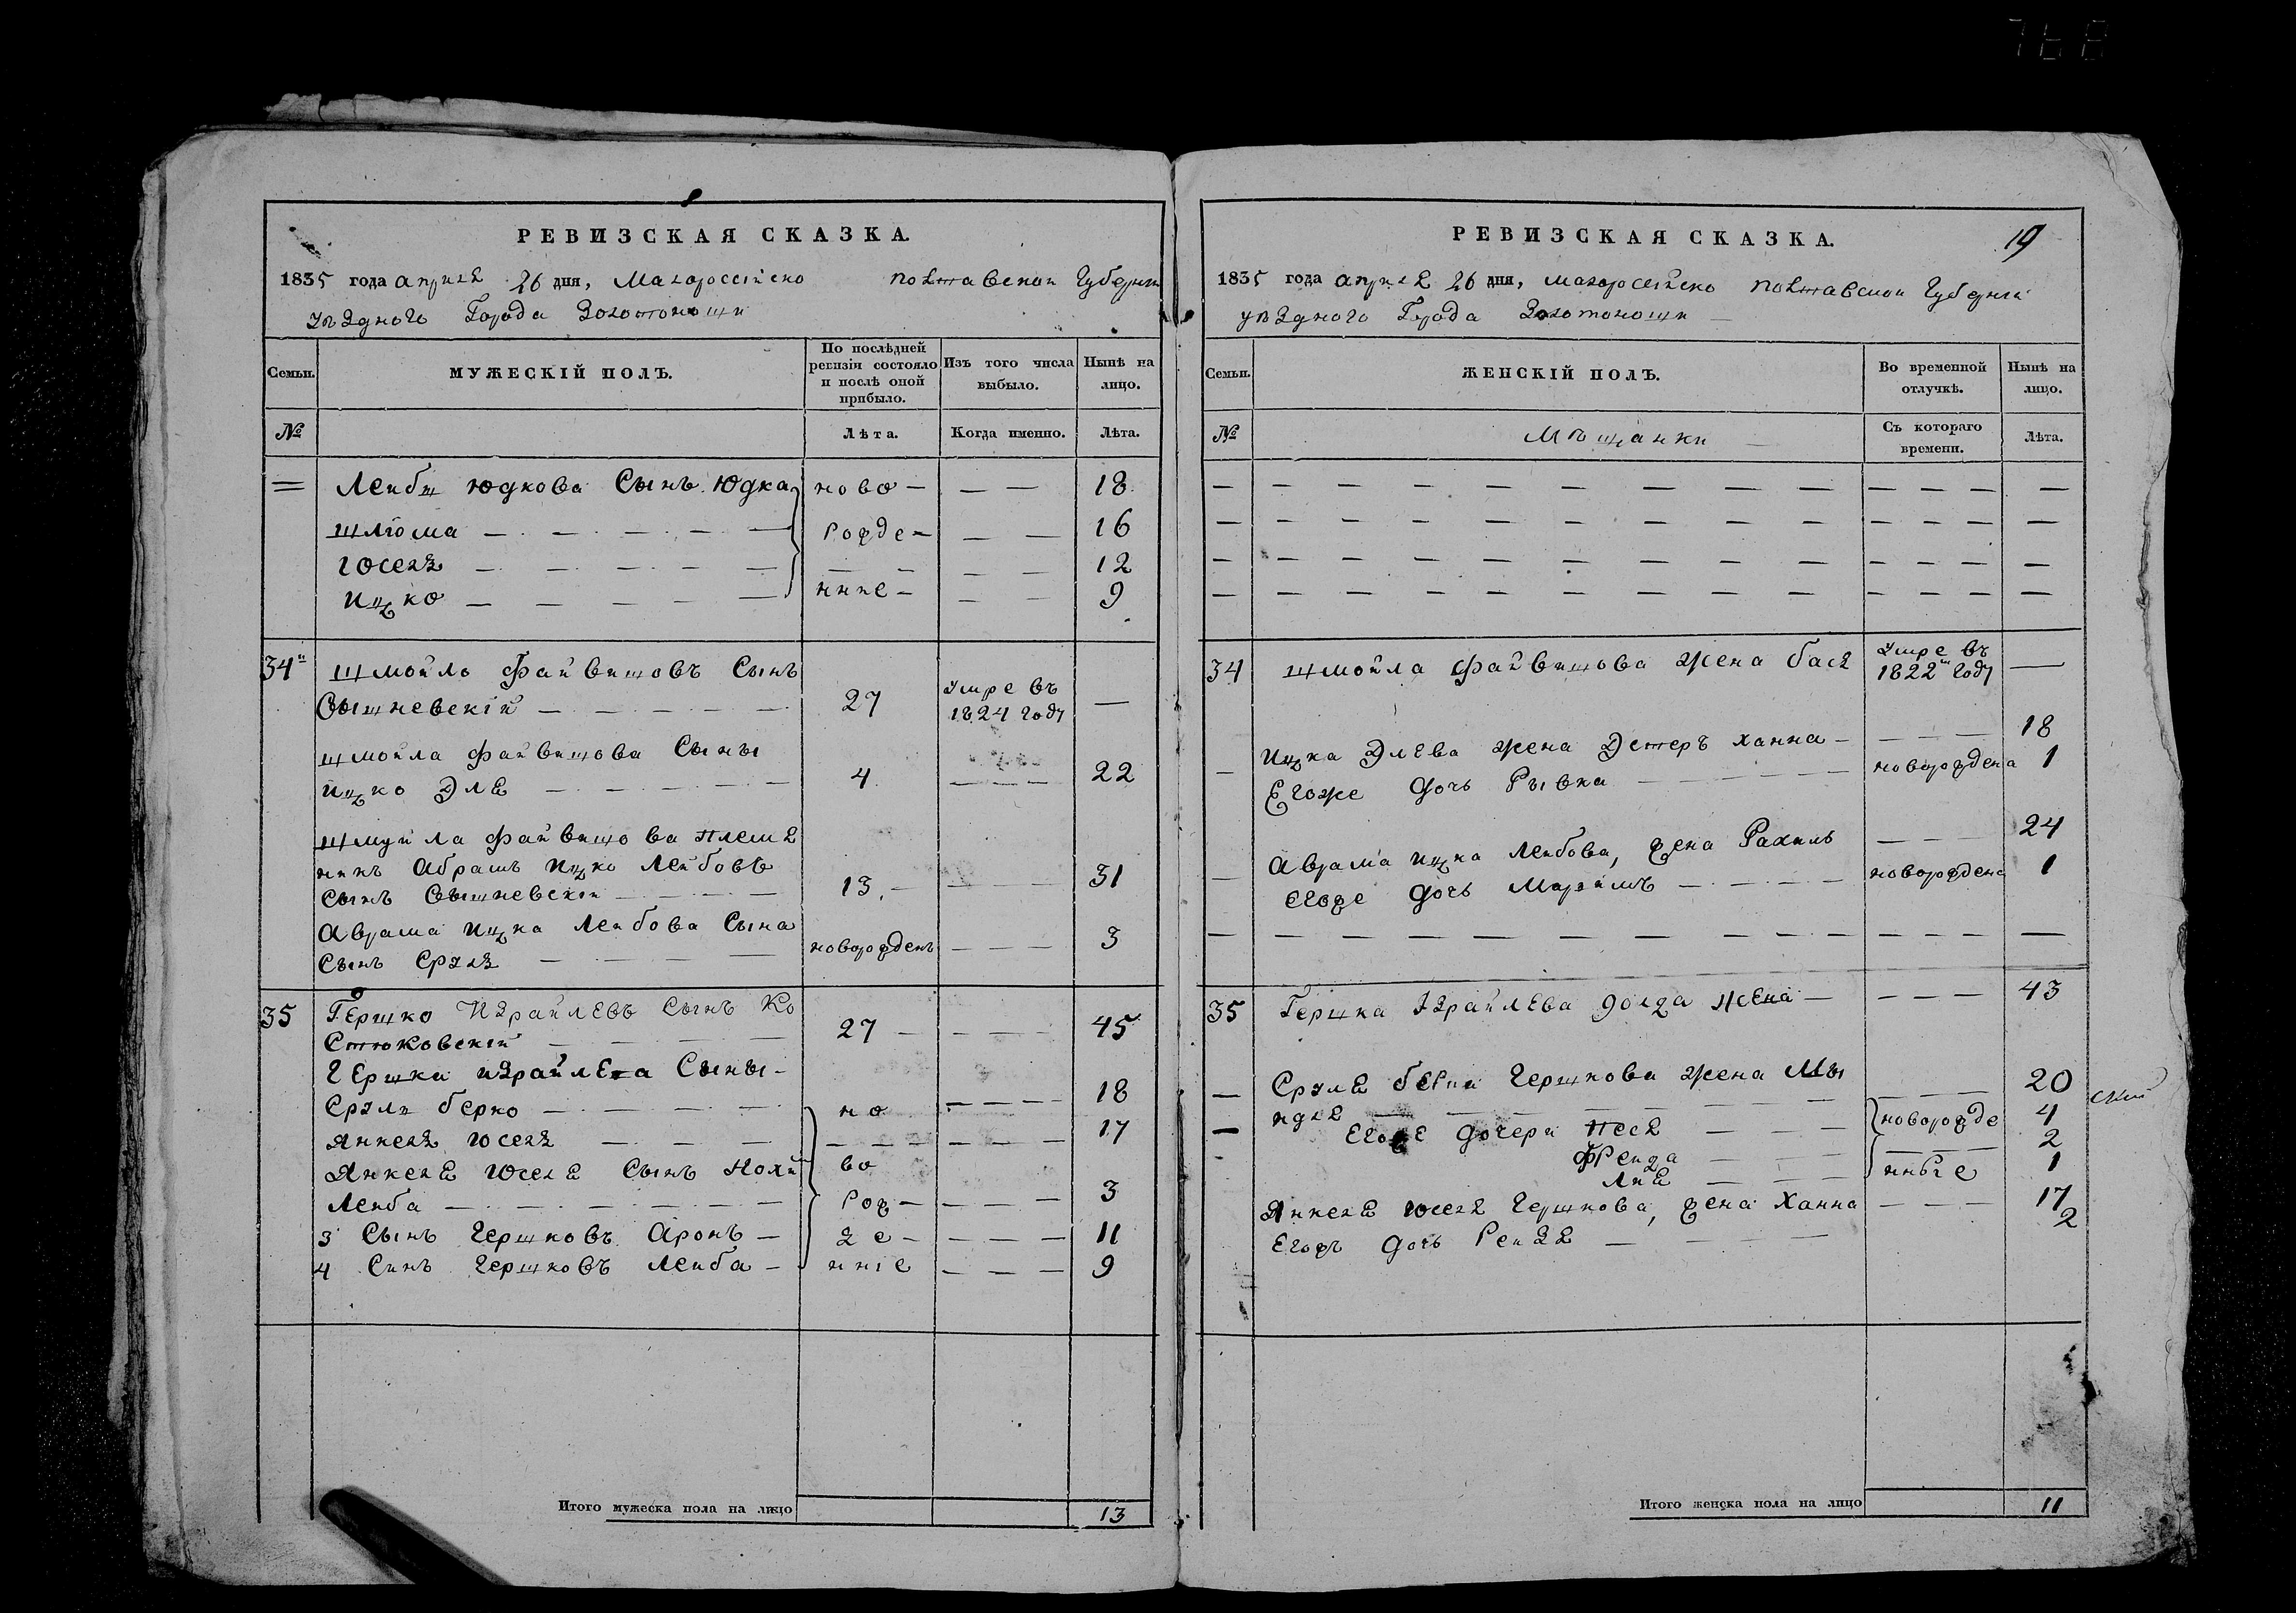 РЕВИЗСКАЯ СКАЗКА.
1835 года апреля 26 дня, Малоросейско полтавской Губернии
уездного Города Золотоноши
Семьи.
МУЖЕСКІЙ ПОЛЪ.
По послѣдней ревизіи состояло и послѣ оной прибыло.
Изъ того числа выбыло.
Нынѣ на лицо.
№
Лѣта.
Когда именно.
Лѣта.
= Лейбы Юдкова Сынъ Юдка ново — — — 18
шліома — рожде — — — 16
Іосель — — — 12
ицко — нніе — — — 9
34й Шмойло Файвишовъ Сынъ
Вышневскій — 27 умре въ 1824 году —
шмойла Файвишова Сыны
ицко Эле — 4 — — — 22
шмуйла Файвишова племе
никъ Абрамъ ицко Лейбовъ
Сынъ Вышневскій — 13. — — — 31
Аврама ицка Лейбова Сына
Сынъ Сруль — новорожденъ — — — 3
35 Гершко Израйлевъ Сынъ Ко
Стюковскій — 27 — — — 45
Гершки израйлева Сыны —
Сруль берко — но — — — 18
Янкель Іосель — — — — 17
Янкеля Юселя Сынъ Нохи
Лейба — во рож — — — 3
3 Сынъ Гершковъ Аронъ — де — — — 11
4 Синъ Гершковъ Лейба — нніе — — — 9
Итого мужеска пола на лицо 13
РЕВИЗСКАЯ СКАЗКА. 19
1835 года апреля 26 дня, малоросейско полтавской Губерніи
уѣздного Города Золотоноши —
Семьи.
ЖЕНСКІЙ ПОЛЪ.
Во временной отлучкѣ.
Нынѣ на лицо.
№
Мѣщанки —
Съ котораго времени.
Лѣта.
34 шмойла файвишова жена бася умре въ 1822м году —
— ицка Элева жена Эстеръ ханна — — — — 18
Егоже дочь Рывка — новорождена 1
— Аврама ицка Лейбова, жена Рахиль — — — 24
егоже дочь Маріимъ — новорождена 1
35 Гершка Израйлева голда жена — — — — 43
— Сруля берка Гершкова жена Мы
ндля — — — — 20
— Егоже дочери песя — новорожде 4
Фрейда — — — 2
Лия — нныіе 1
Янкеля Юселя Гершкова, жена Ханна — — — 17
Егожъ дочь Рейзя — 2
Итого женска пола на лицо 11